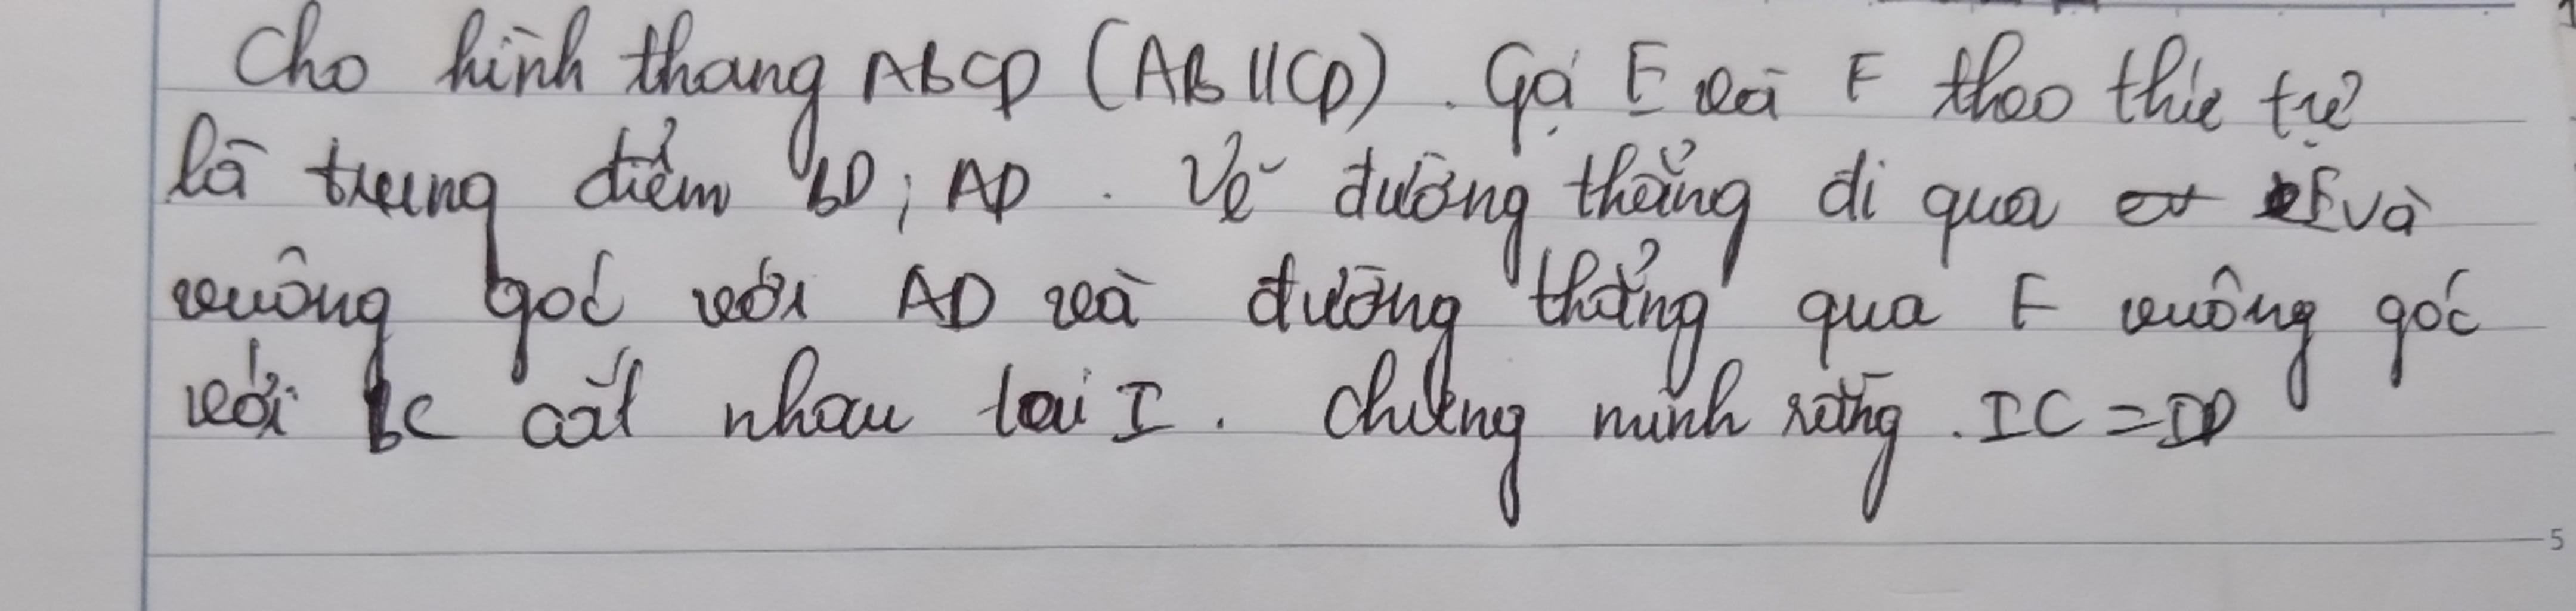 Cho hình thang ABCD (AB//CD). Gọi E và F theo thứ tự
là trung điểm BD; AD. Vẽ đường thẳng đi qua E và
vuông góc với AD và đường thẳng qua F vuông góc
với BC cắt nhau tại I. Chứng minh rằng. IC = ID
5